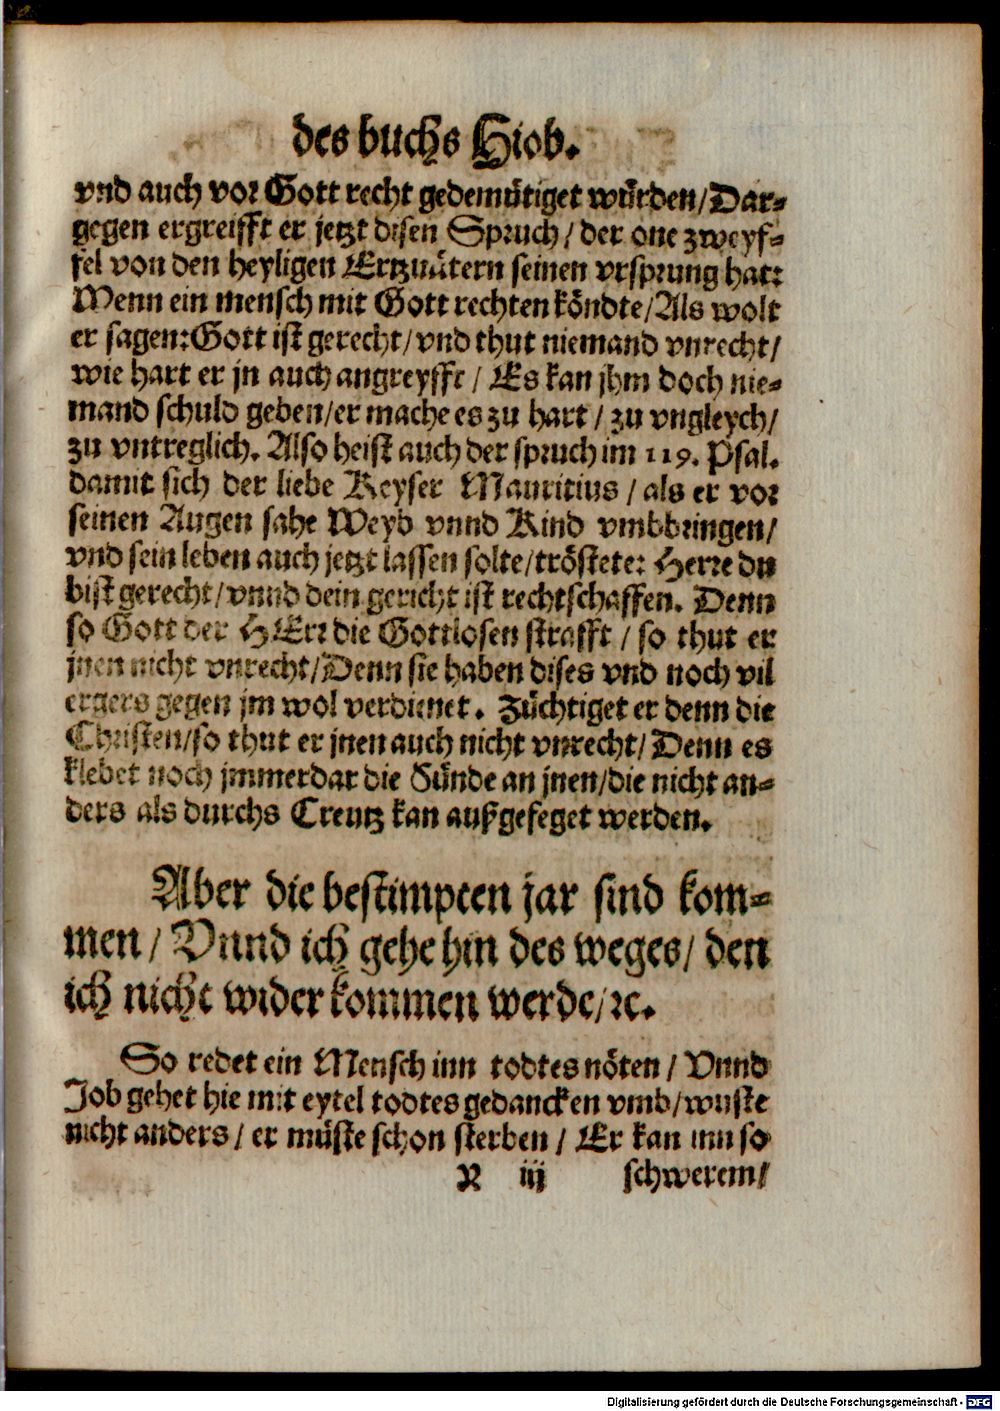 des buchs Hiob.
vnd auch vor Gott recht gedemütiget würden/Dar-
gegen ergreifft er jetzt disen Spruch/ der one zweyf-
fel von den heyligen Ertzuätern seinen vrsprung hat:
Wenn ein mensch mit Gott rechten köndte/Als wolt
er sagen:Gott ist gerecht/vnd thut niemand vnrecht/
wie hart er jn auch angreyffe/ Es kan jhm doch nie-
mand schuld geben/er mache es zu hart/ zu vngleych/
zu vntreglich. Also heist auch der spruch im 119. Psal.
damit sich der liebe Keyser Mauritius/ als er vor
seinen Augen sahe Weyb vnnd Kind vmbbringen/
vnd sein leben auch jetzt lassen solte/tröstete: Herre du
bist gerecht/vnnd dein gericht ist rechtschaffen. Denn
so Gott der HErr die Gottlosen strafft/ so thut er
jnen nicht vnrecht/Denn sie haben dises vnd noch vil
ergers gegen jm wol verdienet. Züchtiget er denn die
Christen/so thut er jnen auch nicht vnrecht/Denn es
klebet noch jmmerdar die Sünde an jnen/die nicht an-
ders als durchs Creutz kan außgefeget werden.
Aber die bestimpten jar sind kom-
men/ Vnnd ich gehe hin des weges/ den
ich nicht wider kommen werde/ꝛc.
So redet ein Mensch inn todtes nöten/ Vnnd
Job gehet hie mit eytel todtes gedancken vmb/wuste
nicht anders/ er müste schon sterben/ Er kan inn so
X iij schwerem/
Digitalisierung gefördert durch die Deutsche Forschungsgemeinschaft - DFG